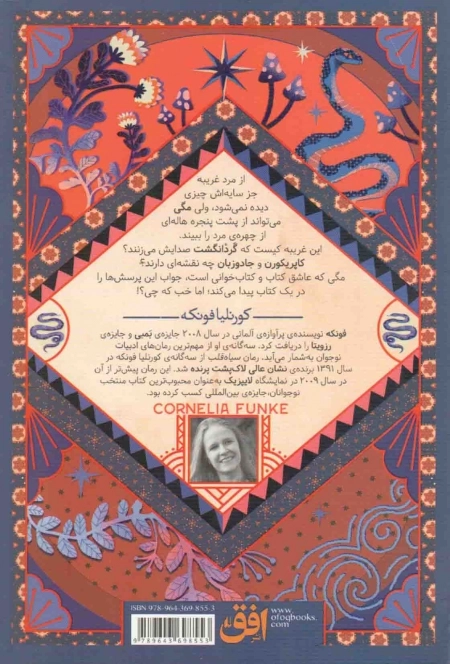 از مرد غریبه
جز سایه‌اش چیزی
دیده نمی‌شود، ولی مگی
می‌تواند از پشت پنجره هاله‌ای
از چهره‌ی مرد را ببیند.
این غریبه کیست که گَردْانگشت صدایش می‌زنند؟
کاپریکورن و جادوزبان چه نقشه‌ای دارند؟
مگی که عاشق کتاب و کتاب‌خوانی است، جواب این پرسش‌ها را
در یک کتاب پیدا می‌کند؛ اما خب که چی؟!
کورنلیا فونکه
فونکه نویسنده‌ی پرآوازه‌ی آلمانی در سال ۲۰۰۸ جایزه‌ی بَمبی و جایزه‌ی
رزویتا را دریافت کرد. سه‌گانه‌ی او از مهم‌ترین رمان‌های ادبیات
نوجوان به‌شمار می‌آید. رمان سیاه‌قلب از سه‌گانه‌ی کورنلیا فونکه در
سال ۱۳۹۱ برنده‌ی نشان عالی لاک‌پشت پرنده شد. این رمان پیش‌تر از آن
در سال ۲۰۰۹ در نمایشگاه لایپزیک به‌عنوان محبوب‌ترین کتاب منتخب
نوجوانان، جایزه‌ی بین‌المللی کسب کرده بود.
CORNELIA FUNKE
ISBN 978-964-369-855-3
9 789643 698553
افق
www.
ofoqbooks.
com